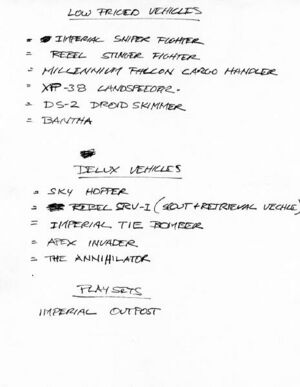 LOW PRICED VEHICLES
- IMPERIAL SNIPER FIGHTER
- REBEL STINGER FIGHTER
- MILLENNIUM FALCON CARGO HANDLER
- XP-38 LANDSPEEDER-
- DS-2 DROID SKIMMER
- BANTHA
DELUX VEHICLES
- SKY HOPPER
- REBEL SRV-1 (SCOUT + RETRIEVAL VECHLE)
- IMPERIAL TIE BOMBER
- APEX INVADER
- THE ANNIHILATOR
PLAY SETS
IMPERIAL OUTPOST